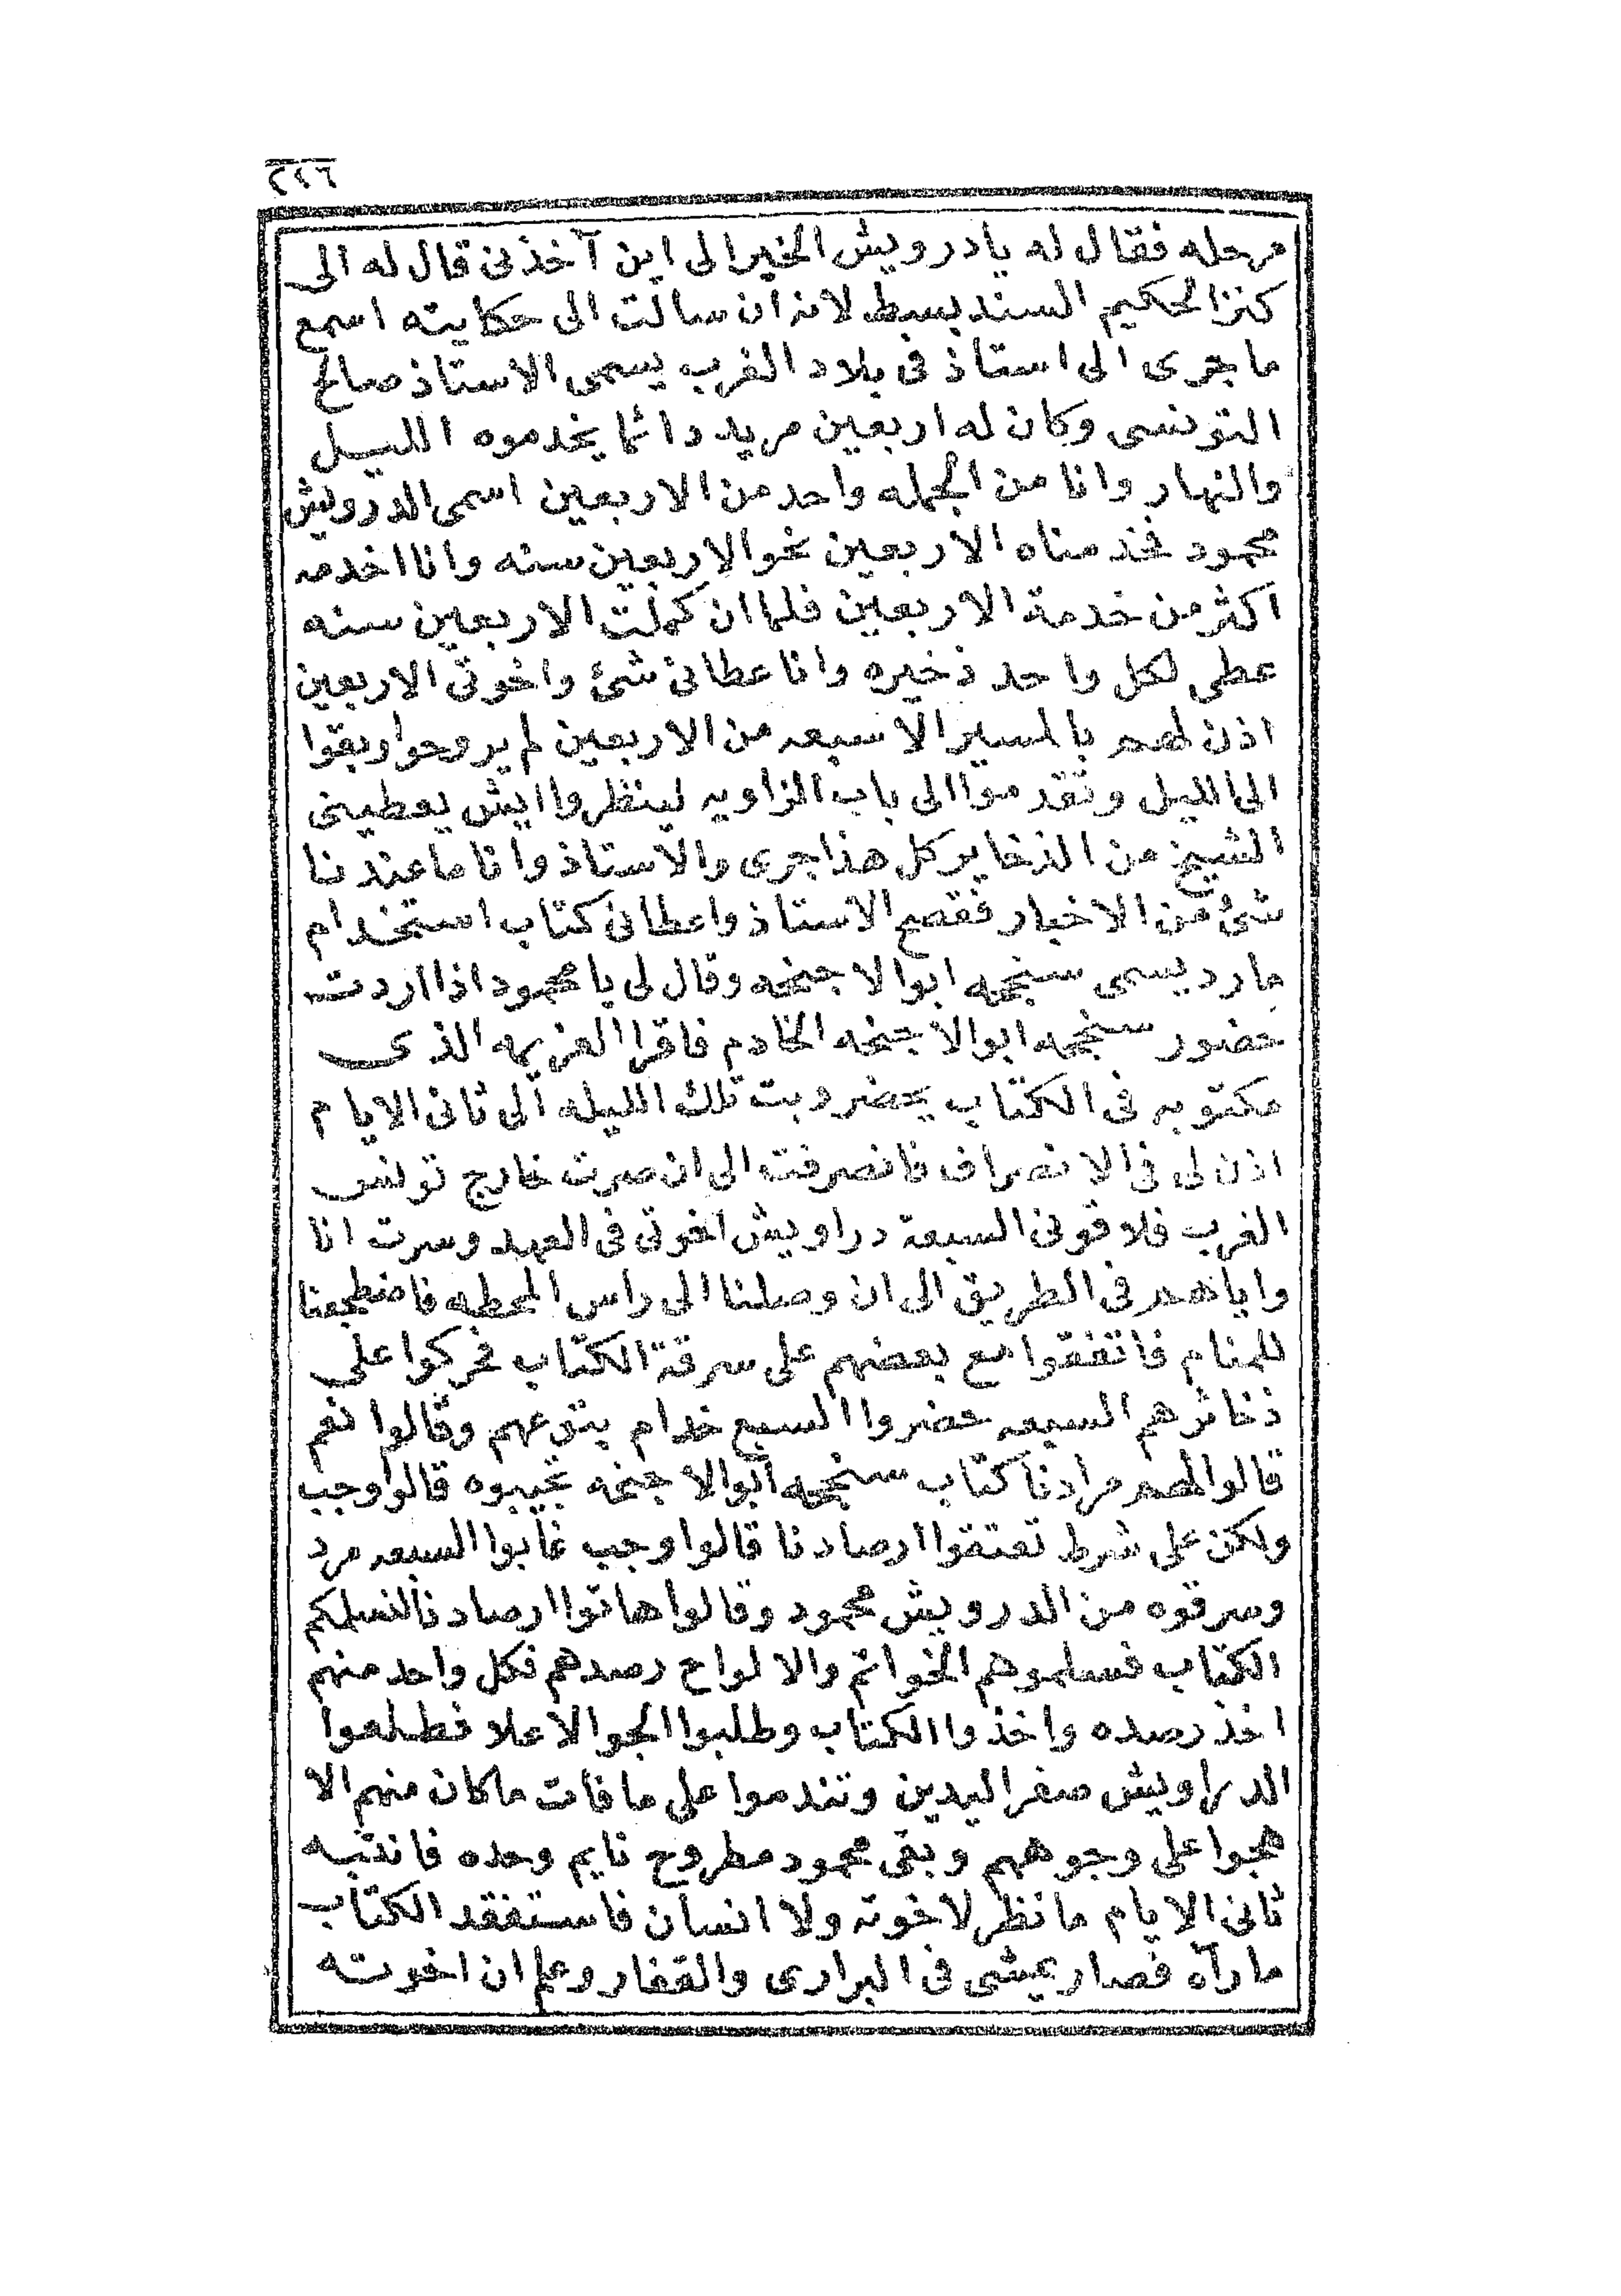 ٢٤٦
مرحله فقال له يا درويش الخير الى اين آخذنى قال له الى
كنز الحكيم السند بسيط لانه ان سالت الى حكايته اسمع
ما جرى الى استاذ فى بلاد الغرب يسمى الاستاذ صالح
التونسى وكان له اربعين مريد دائما يخدموه الليل
والنهار وانا من الجمله واحد من الاربعين اسمى الدرويش
محمود فخدمناه الاربعين نحو الاربعين سنه وانا اخدمه
اكثر من خدمة الاربعين فلما ان كملت الاربعين سنه
عطى لكل واحد ذخيره وانا عطانى شئ واخوتى الاربعين
اذن لهم بالمسير الا سبعه من الاربعين لم يروحوا وبقوا
الى الليل وتقدموا الى باب الزاويه لينظروا ايش يعطينى
الشيخ من الذخاير كل هذا جرى والاستاذ وانا ما عندنا
شئ من الاخبار فقصح الاستاذ واعطانى كتاب استخدام
مارد يسمى سنجمه ابو الاجنحه وقال لى يا محمود اذا اردت
حضور سنجمه ابو الاجنحه الخادم فاقرا العزيمه الذى
مكتوبه فى الكتاب يحضر وبت تلك الليله الى ثانى الايام
اذن لى فى الانصراف فانصرفت الى ان صرت خارج تونس
الغرب فلاقونى السبعة دراويش اخوتى فى العهد وسرت انا
واياهم فى الطريق الى ان وصلنا الى راس المحطه فاضطجعنا
للمنام فاتفقوا مع بعضهم على سرقة الكتاب فحركوا على
ذخائرهم السبعه حضروا السبع خدام بتوعهم وقالوا نعم
قالوا لهم مرادنا كتاب سنجمه ابو الاجنحه تجيبوه قالوا وجب
ولكن على شرط تعتقوا ارصادنا قالوا وجب غابوا السبعه مرد
وسرقوه من الدرويش محمود وقالوا هاتوا ارصادنا لنسلمكم
الكتاب فسلموهم الخواتم والالواح رصدهم فكل واحد منهم
اخذ رصده واخذوا الكتاب وطلبوا الجو الاعلا فطلعوا
الدراويش صفر اليدين وتندموا على ما فات ما كان منهم الا
هجوا على وجوههم وبقى محمود مطروح نايم وحده فانتبه
ثانى الايام ما نظر لاخوته ولا انسان فاستفقد الكتاب
ما رآه فصار يمشى فى البرارى والقفار وعلم ان اخوته